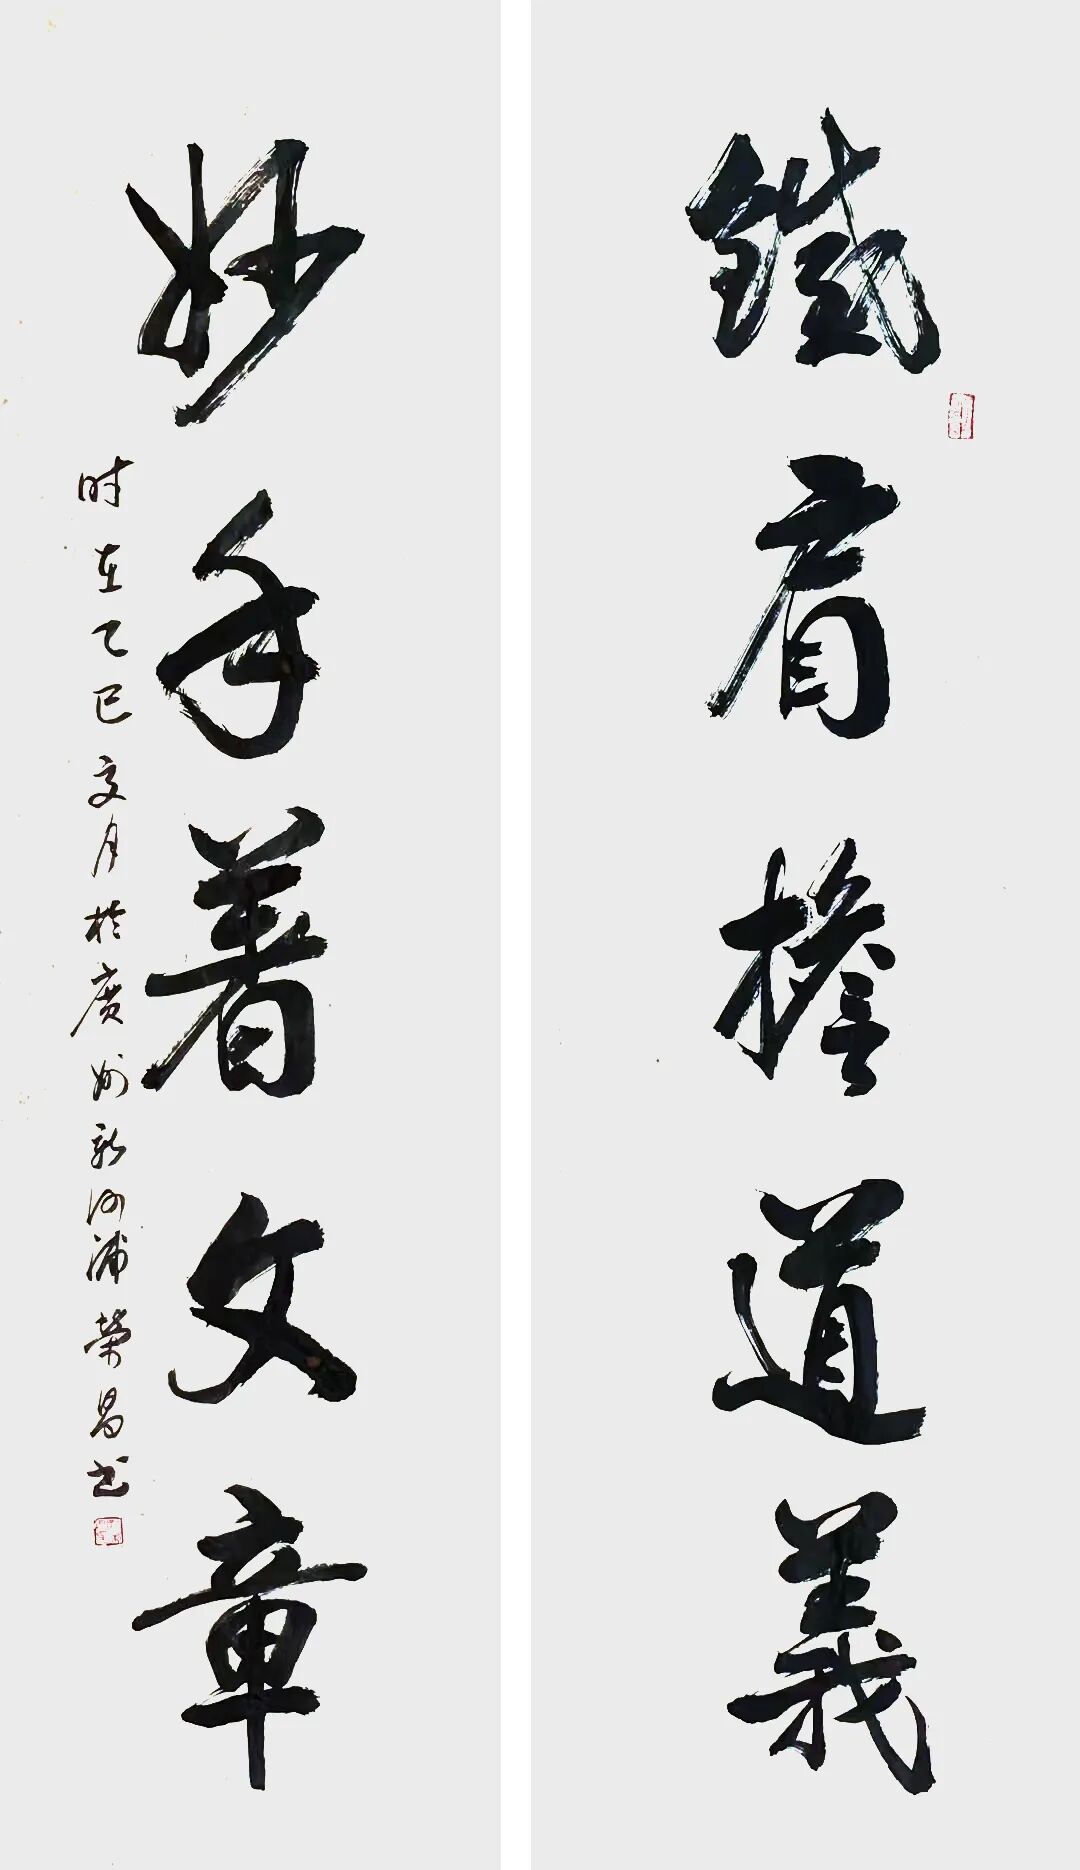 鐵肩擔道義
妙手著文章
时在乙巳文月於廣州新河浦荣昌书